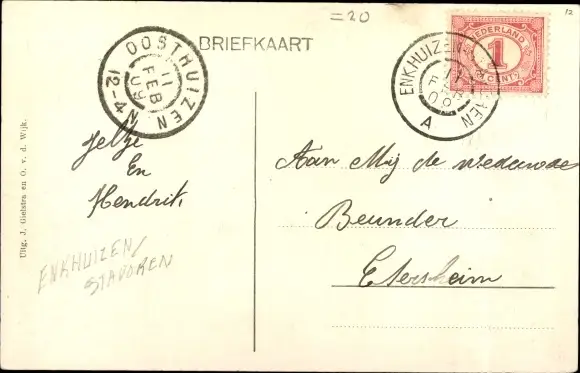 = 20
12
BRIEFKAART
OOSTHUIZEN
11
FEB
09
12-4 N
NEDERLAND
1
CENT
ENKHUIZEN
11
FEB
09
A
Jeltje
En
Hendrik
Aan Mej de wedeuwde
Beunder
Etersheim
ENKHUIZEN/
STAVOREN
Uitg. J. Gielstra en O. v. d. Wijk.